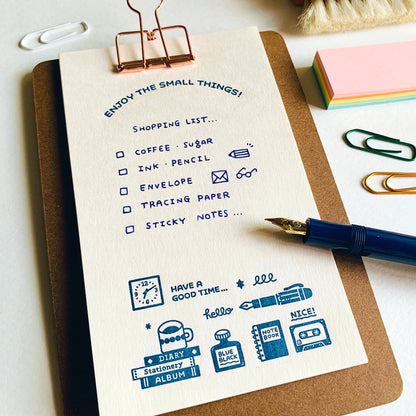 ENJOY THE SMALL THINGS!
SHOPPING LIST...
COFFEE · SUGAR
INK · PENCIL
ENVELOPE
TRACING PAPER
STICKY NOTES ...
12
HAVE A
GOOD TIME...
hello
NICE!
NOTE
BOOK
BLUE
BLACK
DIARY
Stationery
ALBUM